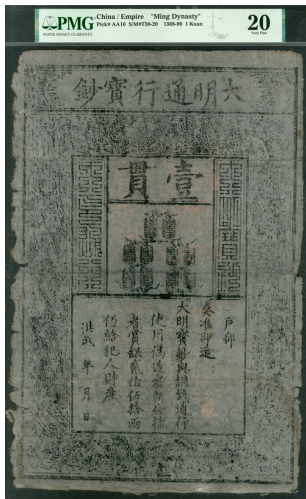 PMG
PAPER MONEY GUARANTY
China / Empire "Ming Dynasty"
Pick# AA10 S/M#T36-20 1368-99 1 Kuan
20
Very Fine
大明通行寶鈔
壹貫
戶部
奏准印造
大明寶鈔與銅錢通行
使用偽造者斬告捕
者賞銀貳佰伍拾兩
仍給犯人財產
洪武 年 月 日